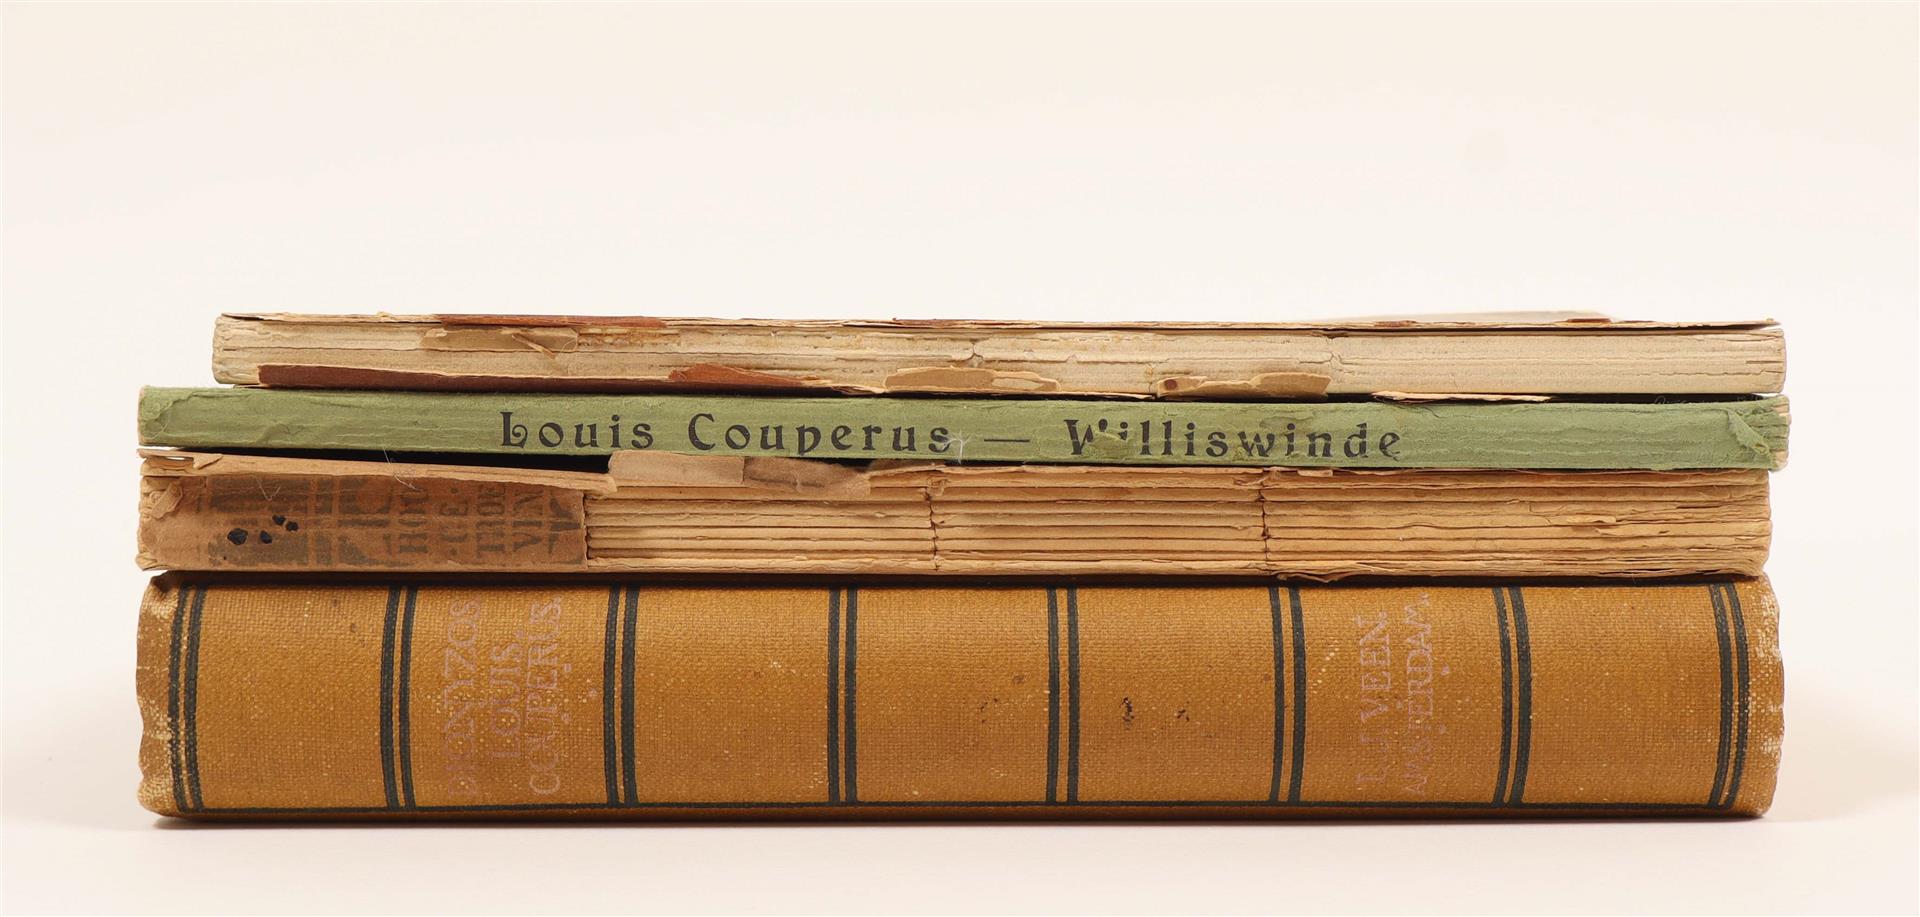 Louis Couperus — Williswinde
DIONYZOS
LOUIS
COUPERUS.
L.J. VEEN.
AMSTERDAM.